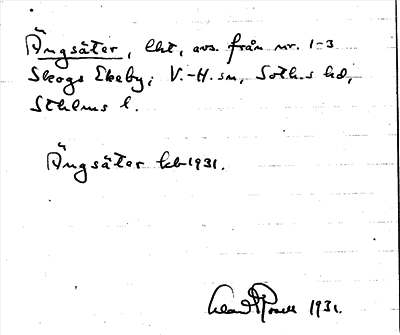 Ängsäter, lht, avs. från nr. 1-3
Skogs Ekeby; V.-H. sn, Soth.s hd,
Sthlms l.
Ängsäter kb 1931.
1931.